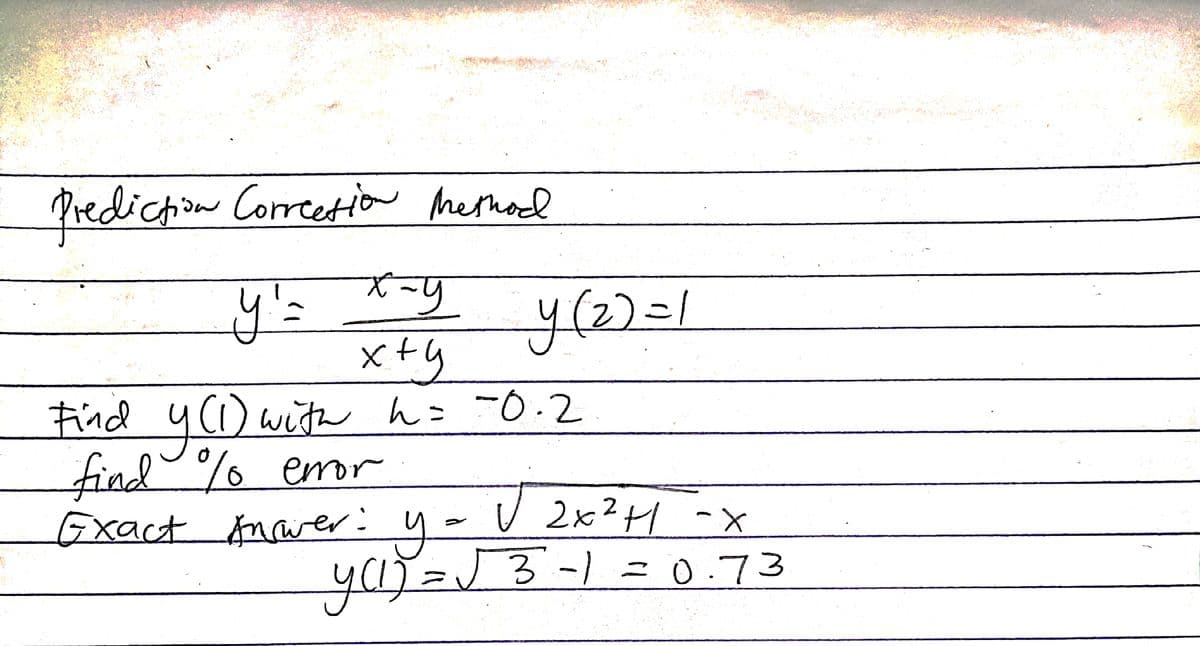 Prediction Correction Method
y' = x-y / x+y y(2)=1
Find y(1) with h = -0.2
find % error
Exact Answer: y = √2x²+1 -x
y(1) = √3 -1 = 0.73